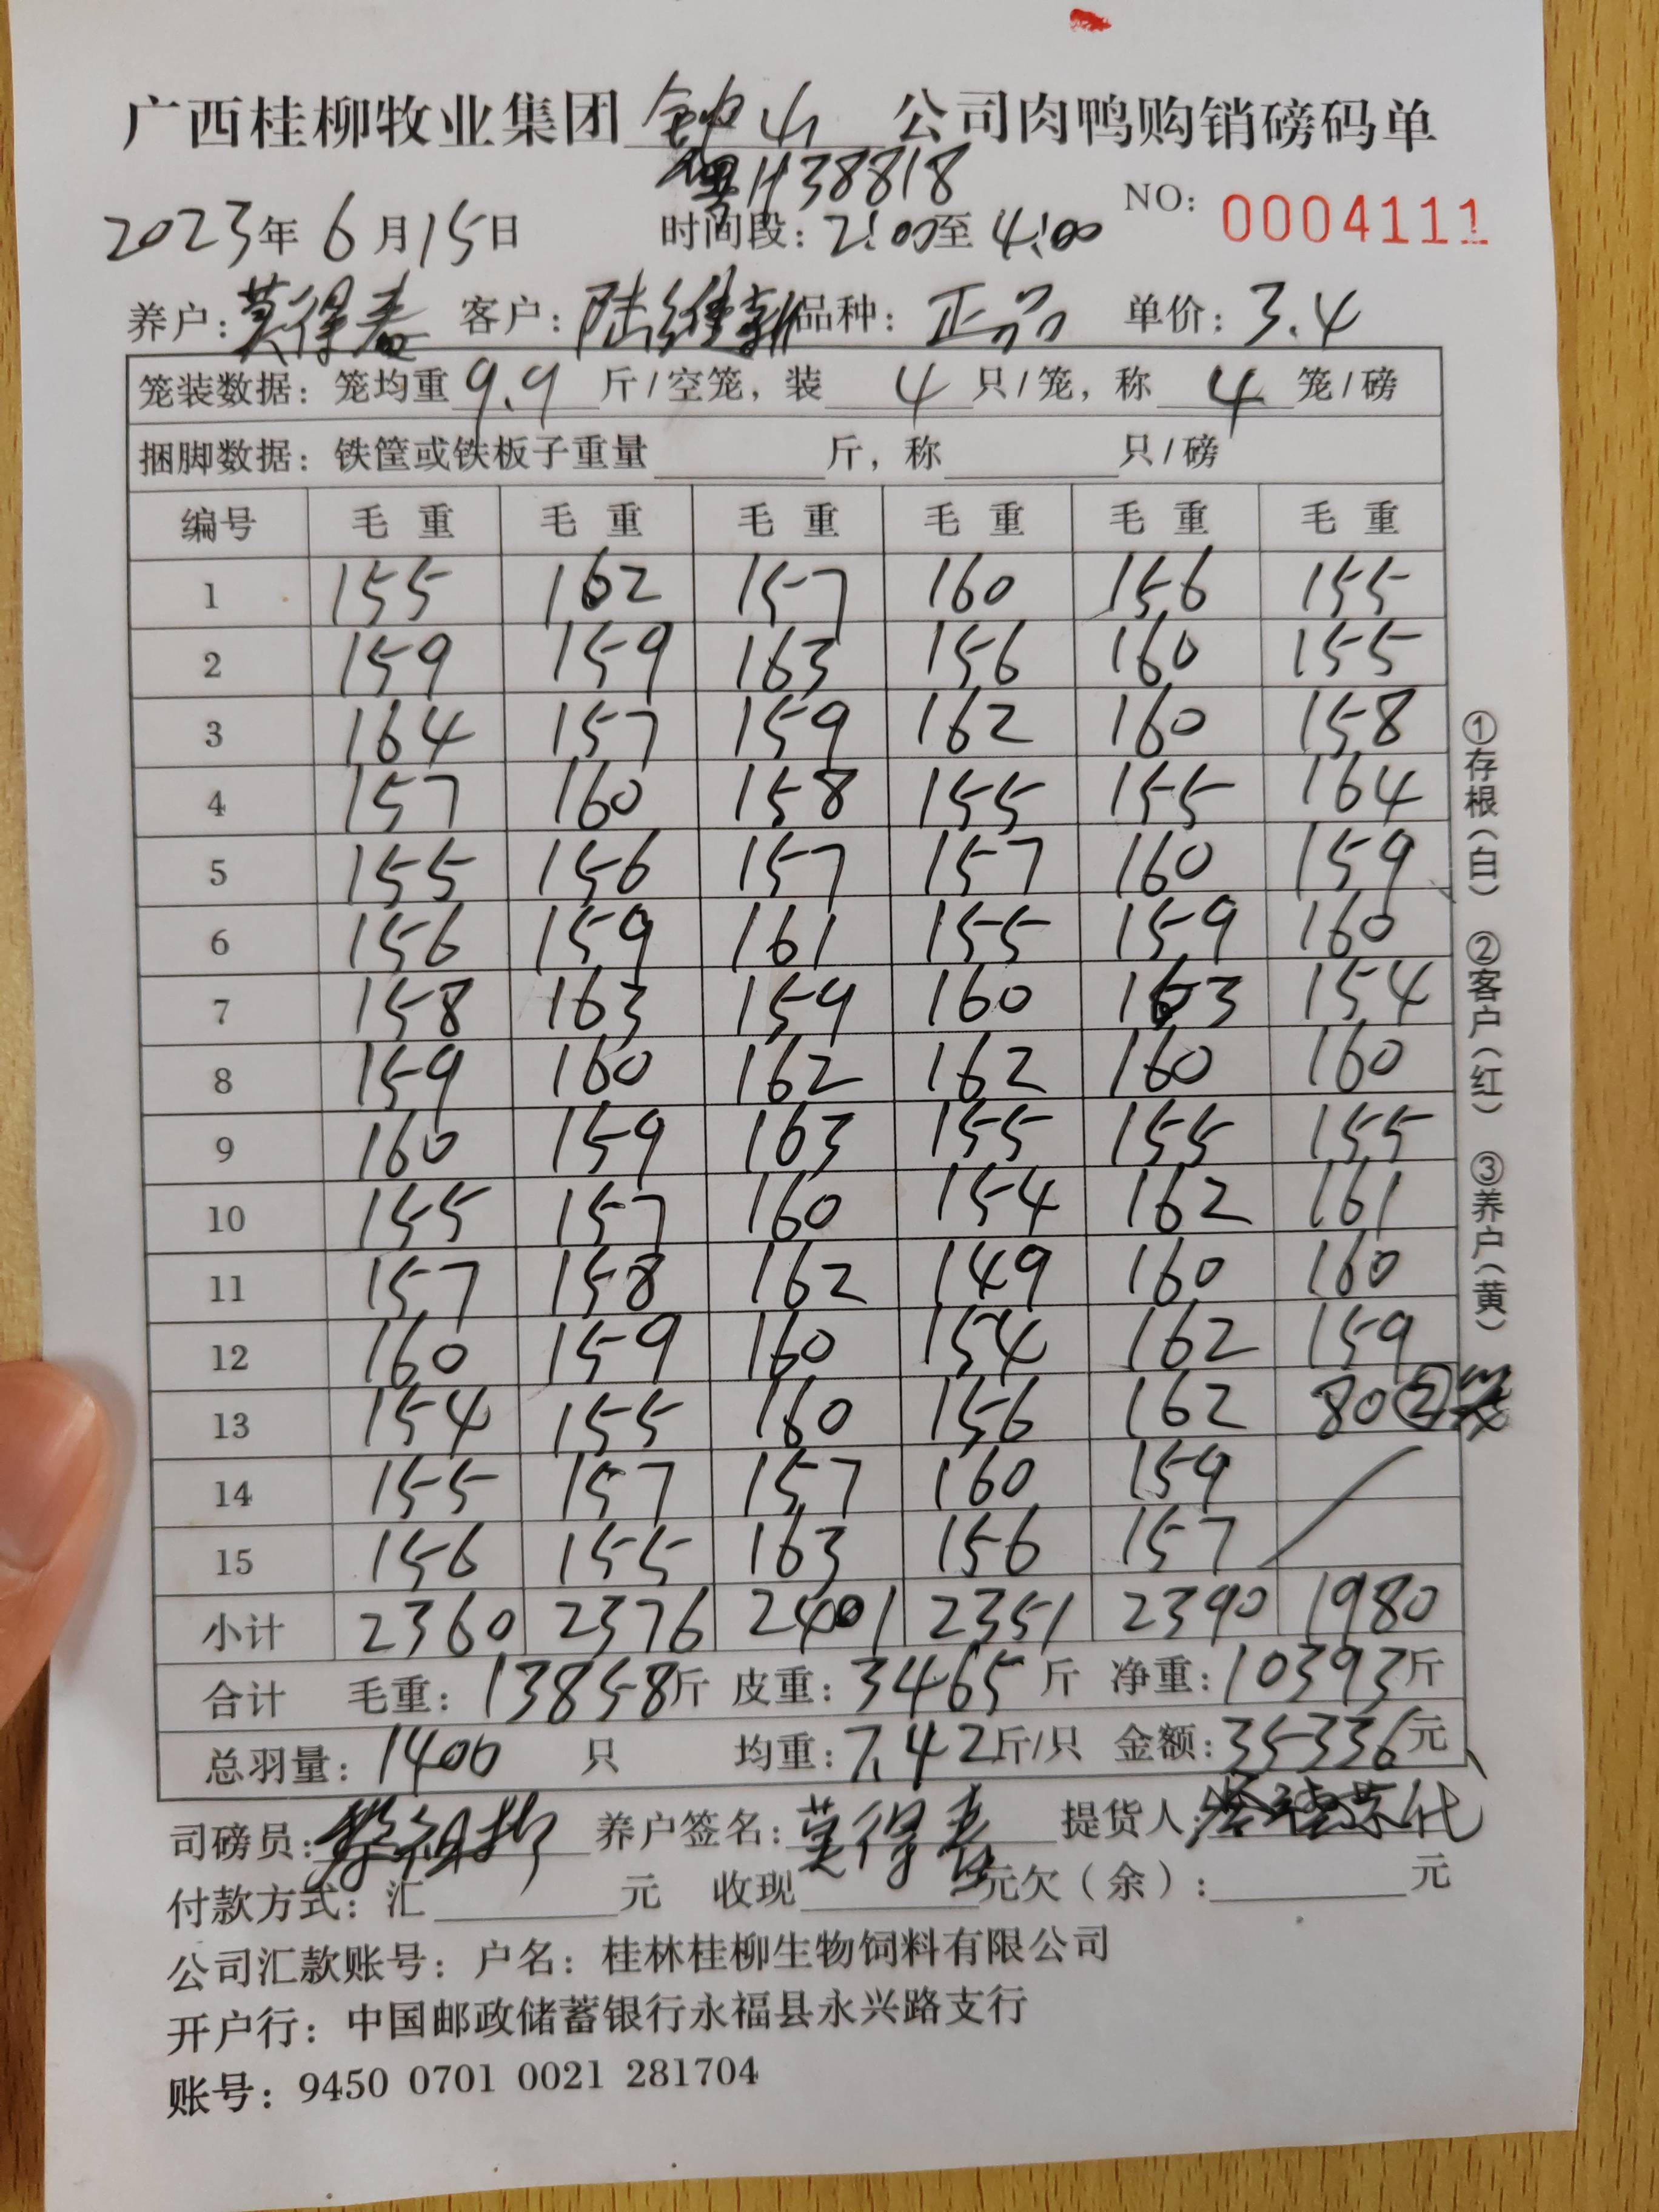 广西桂柳牧业集团 钟山 公司肉鸭购销磅码单
粤H38818
NO: 0004111
2023年 6月15日 时间段: 2:00至 4:00
养户: 莫得春 客户: 陆维新 品种: 正品 单价: 3.4
笼装数据: 笼均重 9.9 斤/空笼, 装 4 只/笼, 称 4 笼/磅
捆脚数据: 铁筐或铁板子重量 斤, 称 只/磅
编号 毛重 毛重 毛重 毛重 毛重 毛重
1 155 162 157 160 156 155
2 159 159 163 156 160 155
3 164 157 159 162 160 158
4 157 160 158 155 155 164
5 155 156 157 157 160 159
6 156 159 161 155 159 160
7 158 163 159 160 163 154
8 159 160 162 162 160 160
9 160 159 163 155 155 155
10 155 157 160 154 162 161
11 157 158 162 149 160 160
12 160 159 160 154 162 159
13 154 155 160 156 162 80 ②笼
14 155 157 157 160 159
15 156 155 163 156 157
小计 2360 2376 2401 2351 2390 1980
合计 毛重: 13858斤 皮重: 3465 斤 净重: 10393斤
总羽量: 1400 只 均重: 7.42斤/只 金额: 35336元
司磅员: 养户签名: 莫得春 提货人: 代
付款方式: 汇 元 收现 元欠(余): 元
公司汇款账号: 户名: 桂林桂柳生物饲料有限公司
开户行: 中国邮政储蓄银行永福县永兴路支行
账号: 9450 0701 0021 281704
①存根(白) ②客户(红) ③养户(黄)